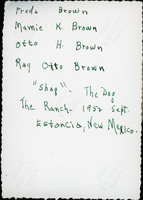 Freda Brown
Mamie K. Brown
Otto H. Brown
Ray Otto Brown
"Shag" - The Dog
The Ranch - 1952 Sept.
Estancia, New Mexico.